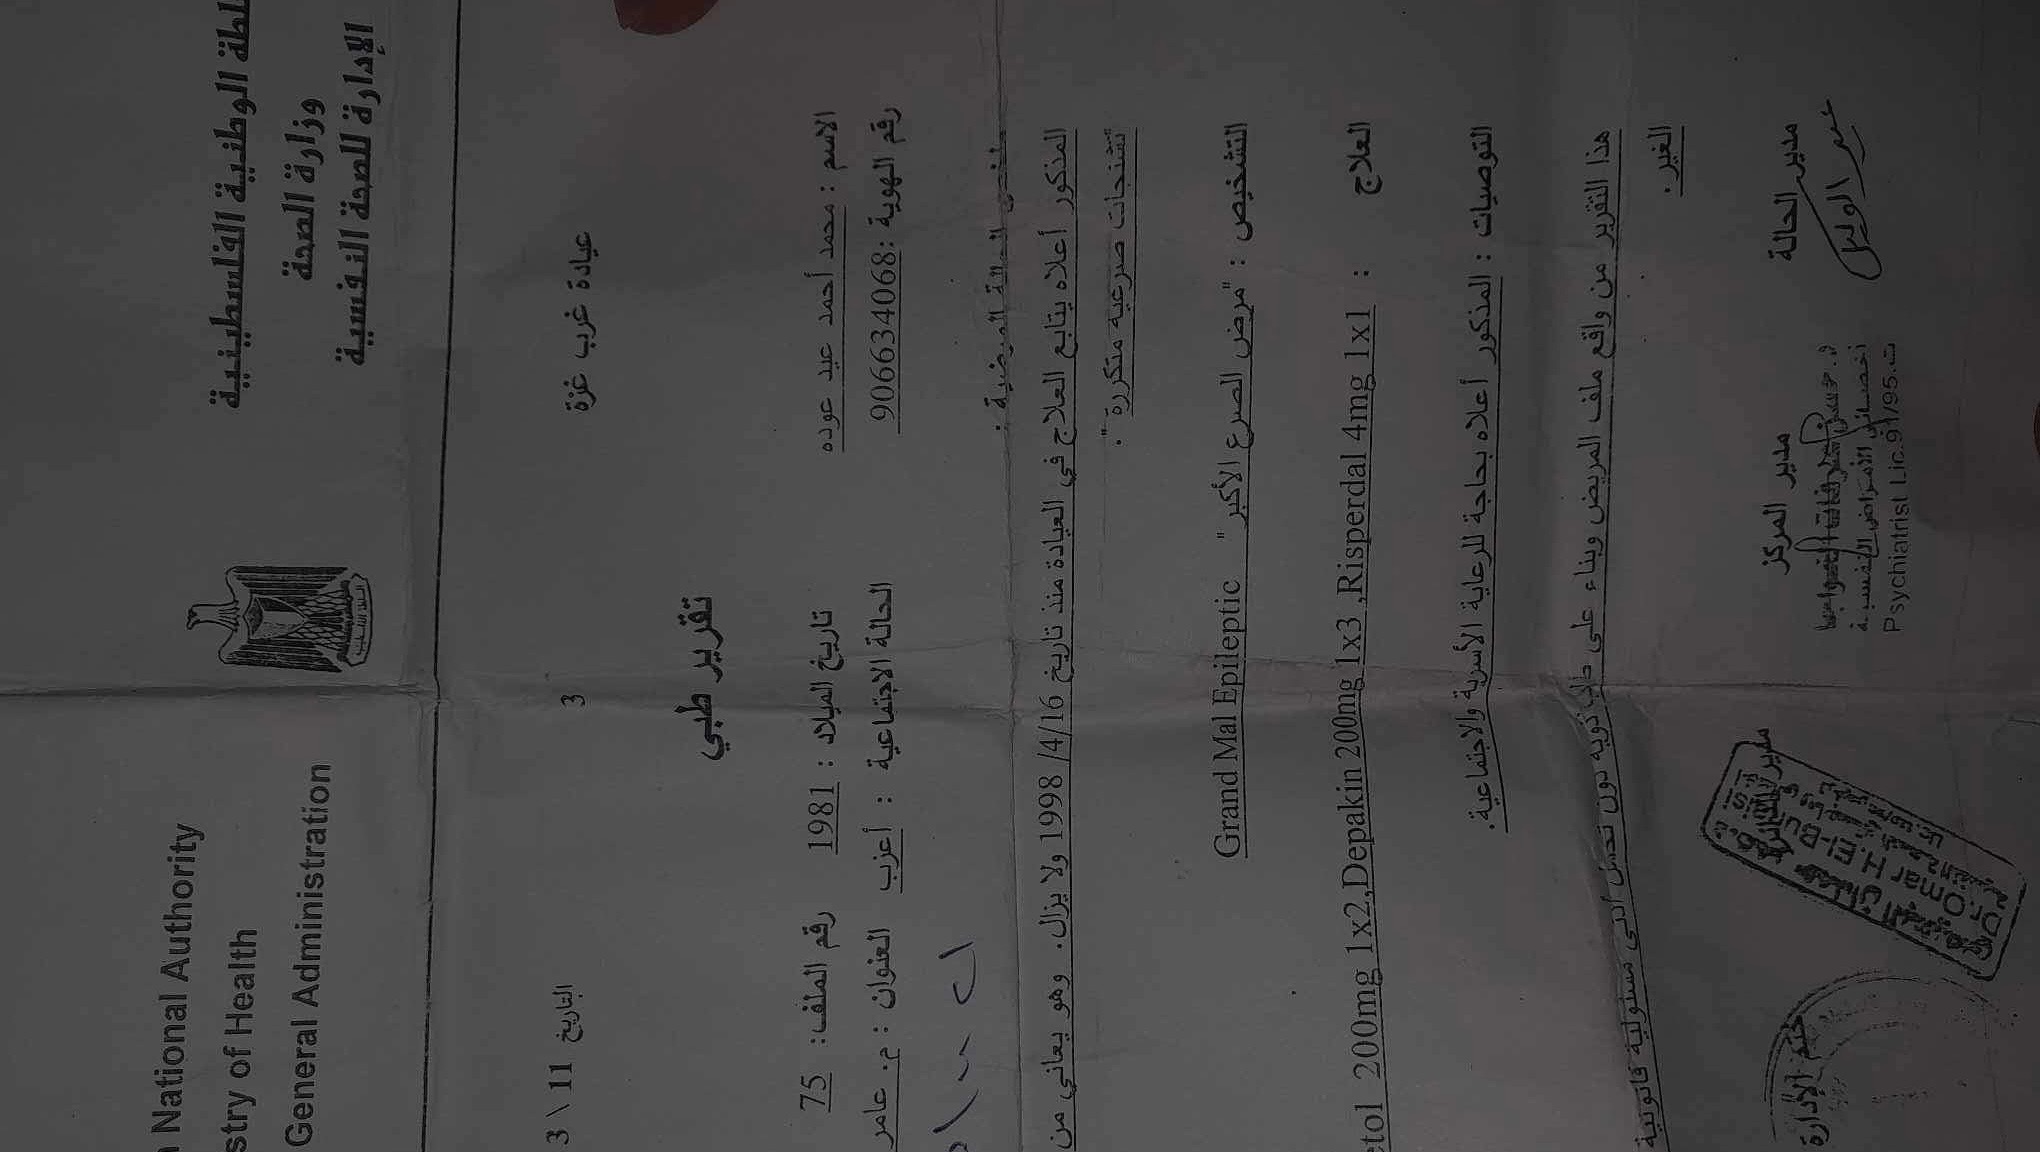 لطة الوطنية الفلسطينية
وزارة الصحة
الإدارة للصحة النفسية
National Authority
stry of Health
General Administration
عيادة غرب غزة
3
التاريخ 11 \ 3
تقرير طبي
الاسم : محمد أحمد عبد عوده تاريخ الميلاد : 1981 رقم الملف: 75
رقم الهوية :906634068 الحالة الاجتماعية : أعزب العنوان : م. عامر
المذكور أعلاه يتابع العلاج في العيادة منذ تاريخ 16/4/ 1998 ولا يزال. وهو يعاني من
تشنجات صرعية متكررة".
التشخيص : "مرض الصرع الأكبر " Grand Mal Epileptic
العلاج : etol 200mg 1x2,Depakin 200mg 1x3 ,Risperdal 4mg 1x1
التوصيات : المذكور أعلاه بحاجة للرعاية الأسرية والاجتماعية.
هذا التقرير من واقع ملف المريض وبناء على طلب ذويه دون تحمل أدنى مسئولية قانونية
الغير.
مدير الحالة
مدير المركز
أخصائي الأمراض النفسية
Psychiatrist Lic.91/95.ت
Dr.Omar H. El-Bu
ختم الإدارة